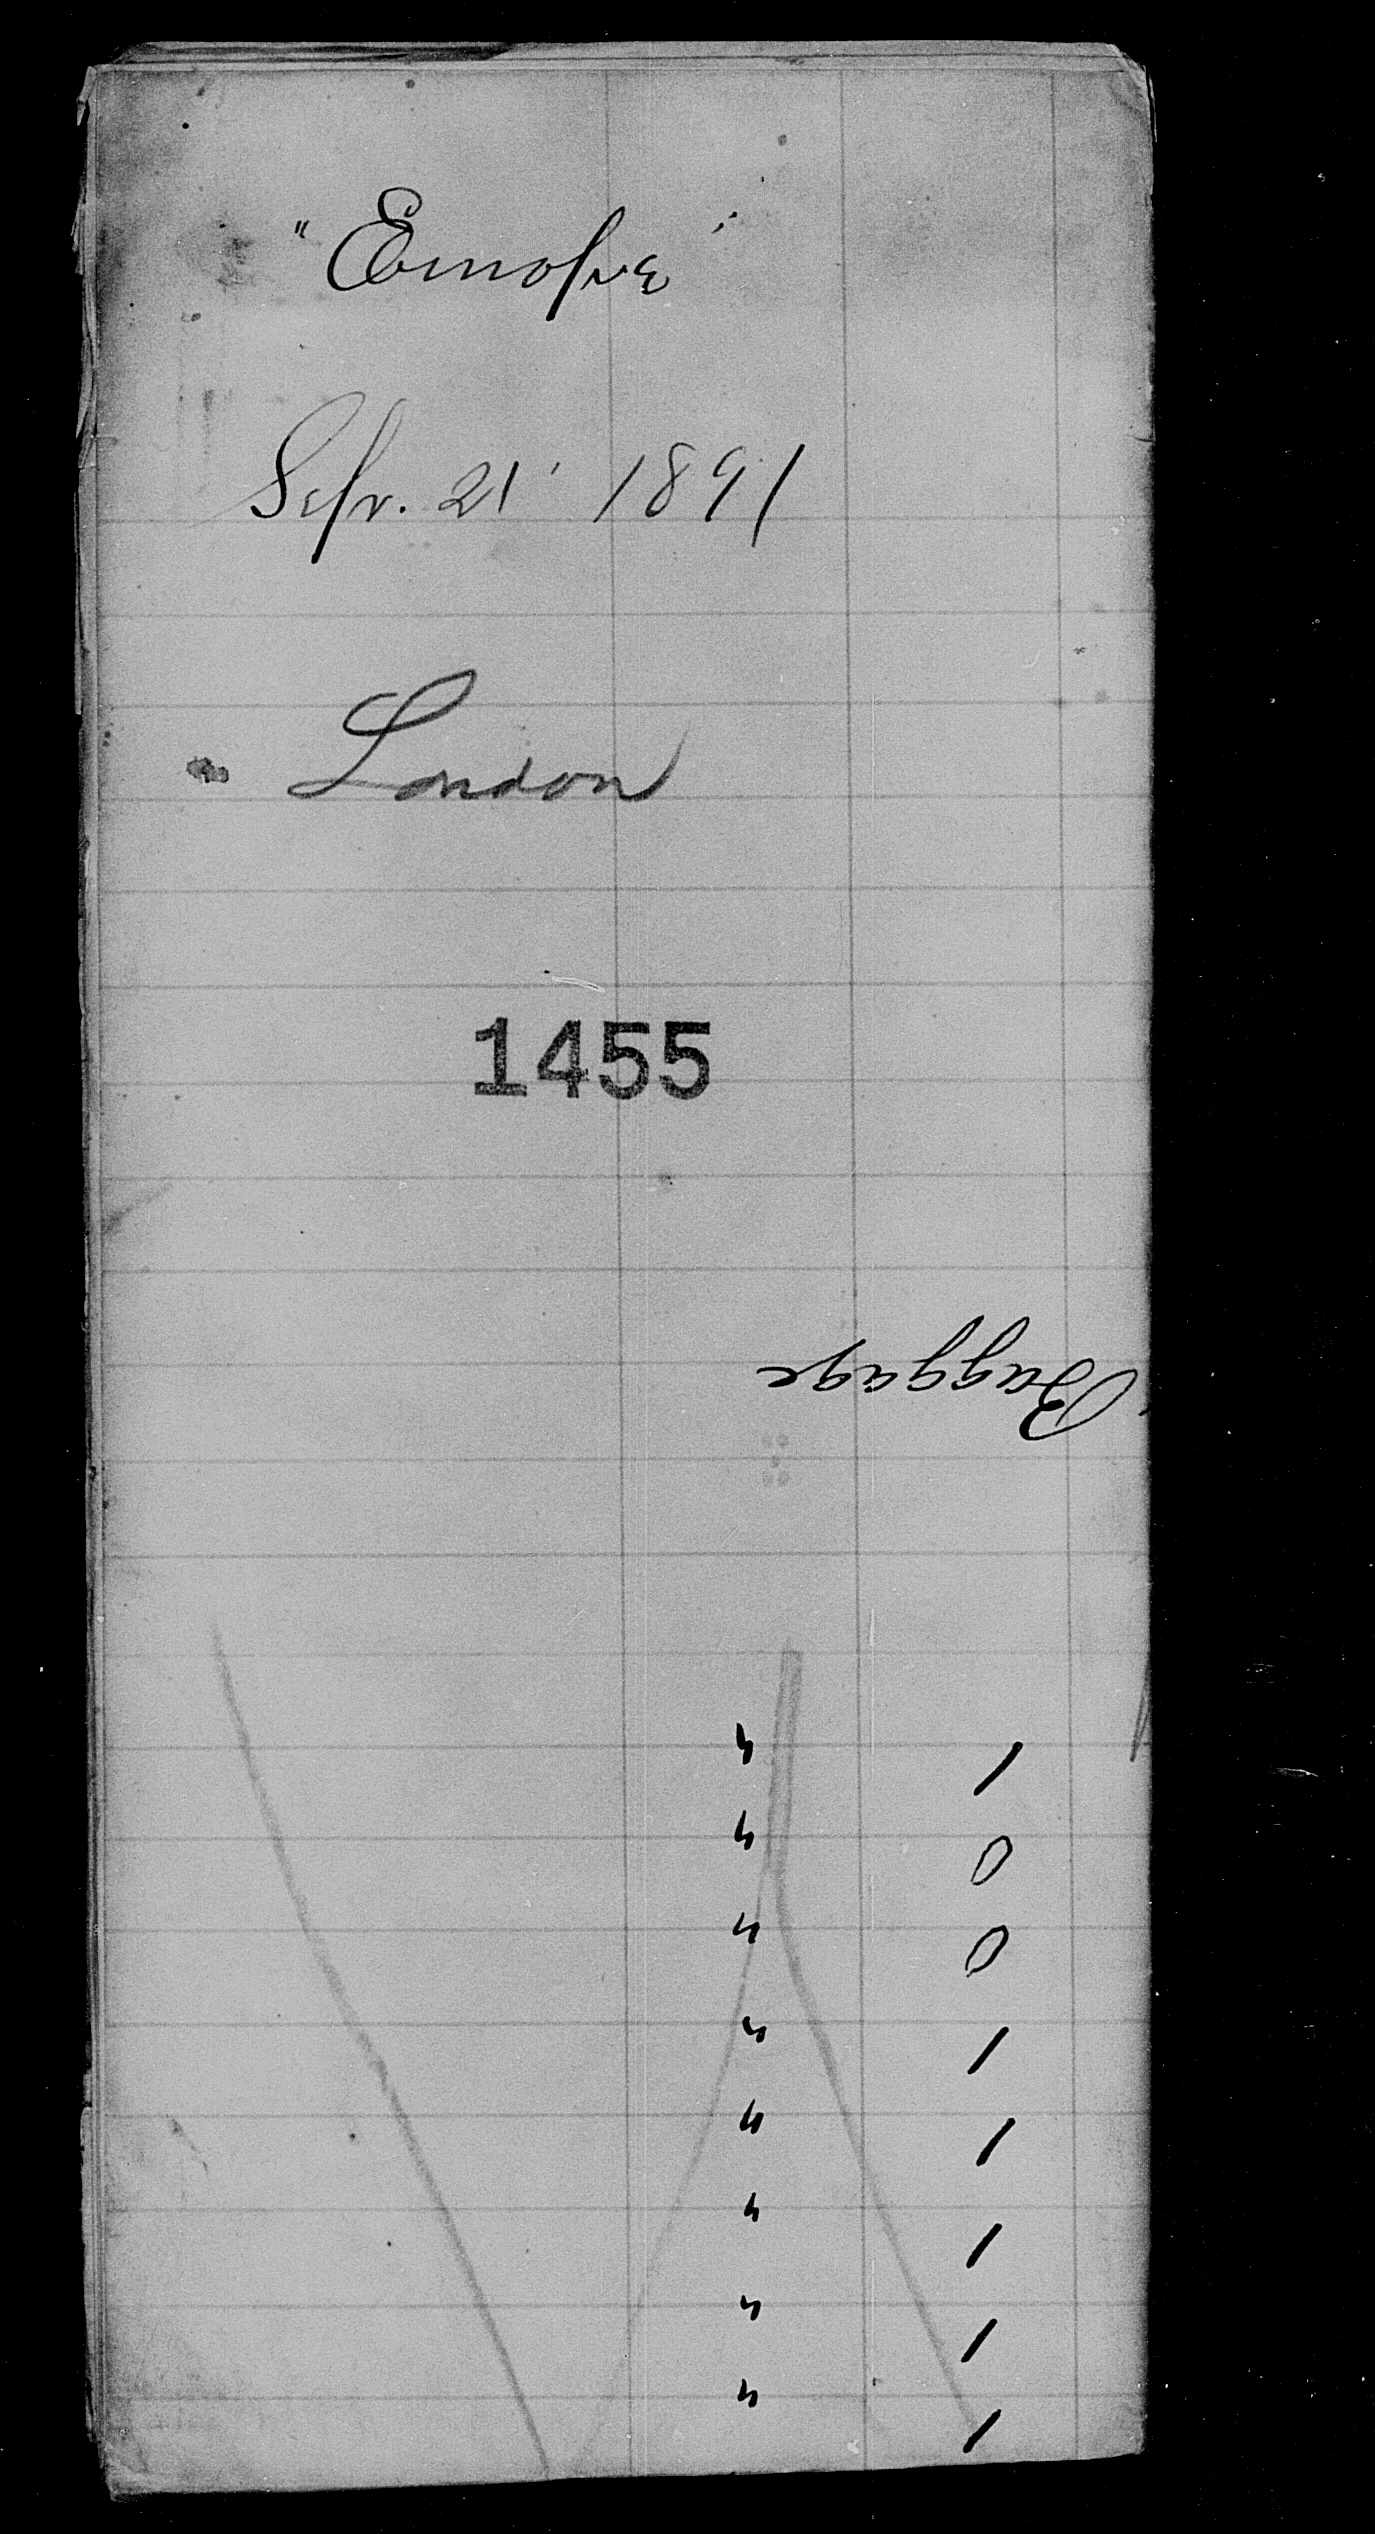 "Europe"
Sep. 21' 1891
London
1455
Baggage
" 1
" 0
" 0
" 1
" 1
" 1
" 1
" 1